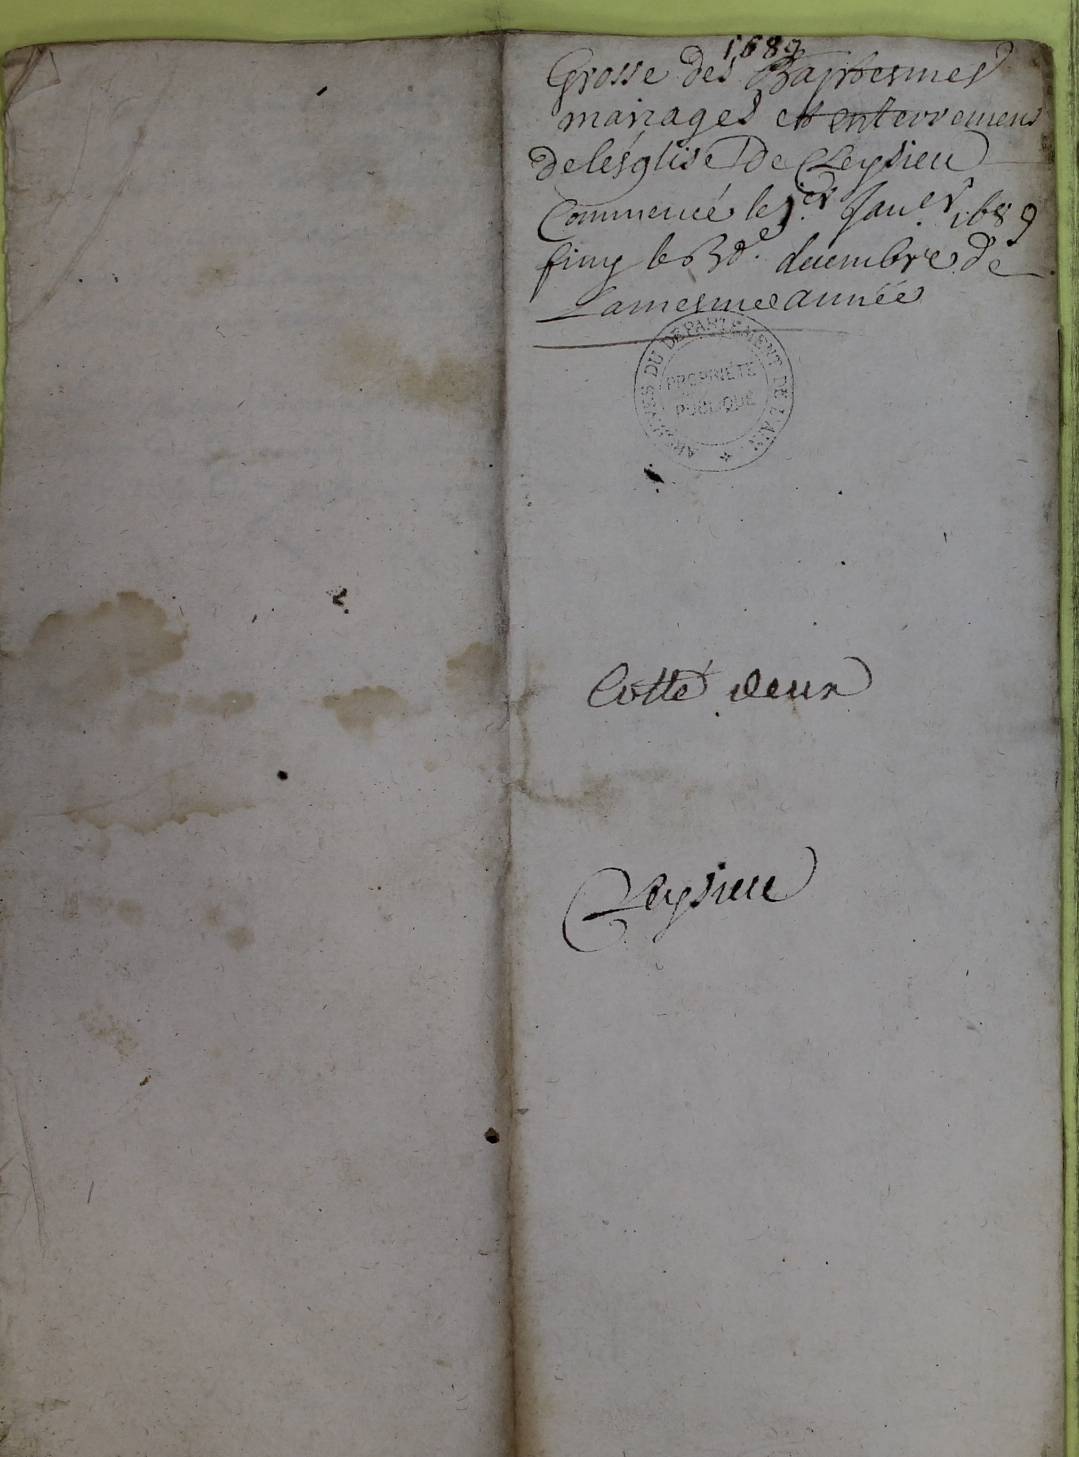 1689
Grosse des Baptesmes
mariages et enterremens
de lesglise de Leysieu
Commencé le 1er Janer 1689
finy le decembre de
La mesme année
ARCHIVES DU DEPARTEMENT DE L'AIN
PROPRIÉTÉ
PUBLIQUE
Cotté deux
Leysieu